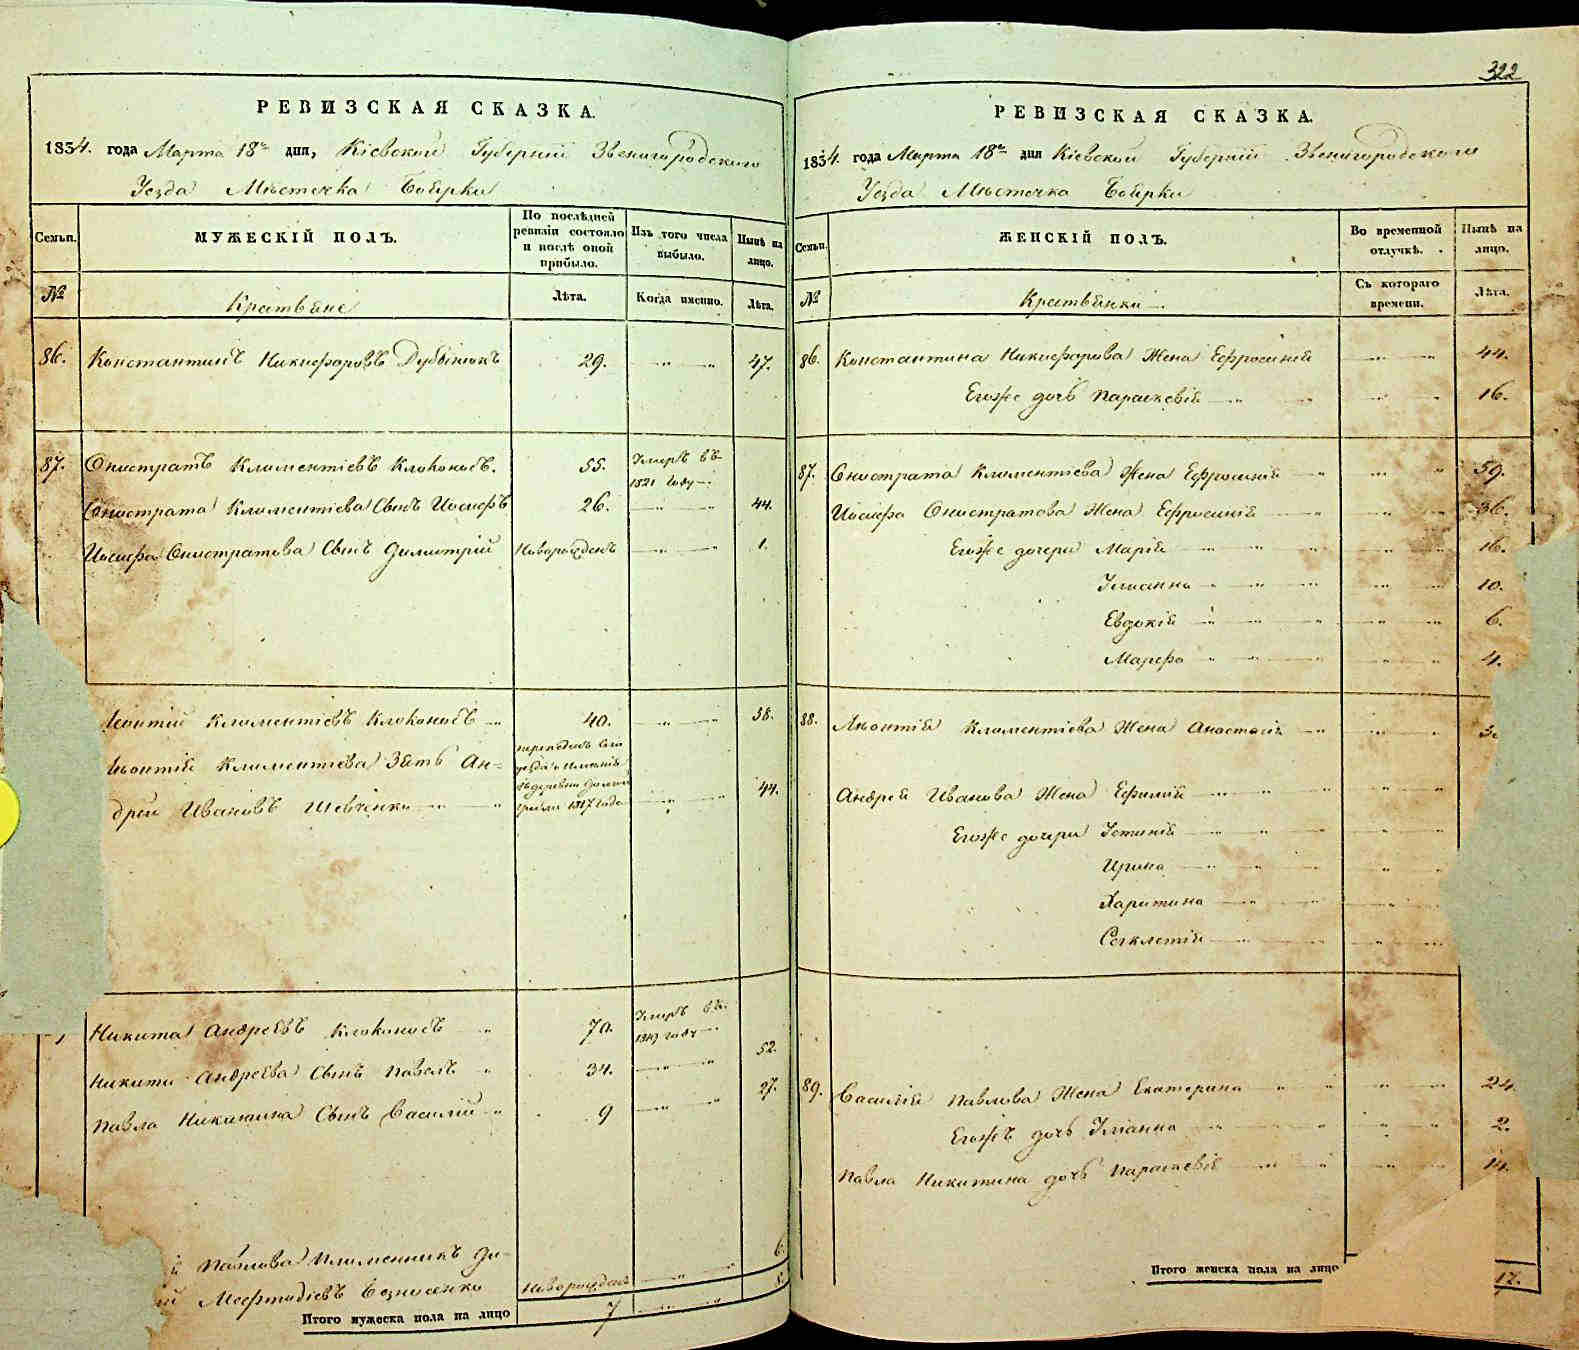 РЕВИЗСКАЯ СКАЗКА.
1834. года Марта 18го дня, Кіевской Губерніи Звенигородскаго
Уезда Местечка Боярки
Семьи. МУЖЕСКІЙ ПОЛЪ. По послѣдней ревизіи состояло и послѣ оной прибыло. Изъ того числа выбыло. Нынѣ на лицо.
№ Крестьяне Лѣта. Когда именно. Лѣта.
86. Константинъ Никифоровъ 29. 47.
87. Онистратъ Климентіевъ Клоконосъ. 55. Умеръ въ 1821 году
Онистрата Климентіева Сынъ Иосифъ 26. 44.
Иосифа Онистратова Сынъ Димитрій Новорожденъ 1.
Климентіевъ Клоконосъ 40. 58.
Климентіева Зять Ан-
дрей Ивановъ Шевченко 1817 года 44.
Никита Андреевъ Клоконосъ 70. Умеръ въ 1819 году
Никиты Андреева Сынъ Павелъ 34. 52.
Павла Никитина Сынъ Василій 9 27.
Павлова Племенникъ Ди-
Мефтодіевъ Безносенко Новорожденъ 6.
Итого мужеска пола на лицо 7
322
РЕВИЗСКАЯ СКАЗКА.
1834. года Марта 18го дня Кіевской Губерніи Звенигородскаго
Уезда Местечка Боярки
Семьи. ЖЕНСКІЙ ПОЛЪ. Во временной отлучкѣ. Нынѣ на лицо.
№ Крестьянки Съ котораго времени. Лѣта.
86. Константина Никифорова Жена Ефросинія 44.
Егоже дочь Параскевія 16.
87. Онистрата Климентіева Жена Ефросинія 59.
Иосифа Онистратова Жена Ефросинія 36.
Егоже дочери Марія 16.
Ульянна 10.
Евдокія 6.
Марфа 4.
88. Леонтія Климентіева Жена Анастасія
Андрея Иванова Жена Ефимія
Егоже дочери Устинія
Ирина
Харитина
Секлетія
89. Василія Павлова Жена Екатерина 24.
Егожъ дочь Ульянна 2.
Павла Никитина дочь Параскевія 14.
Итого женска пола на лицо 17.